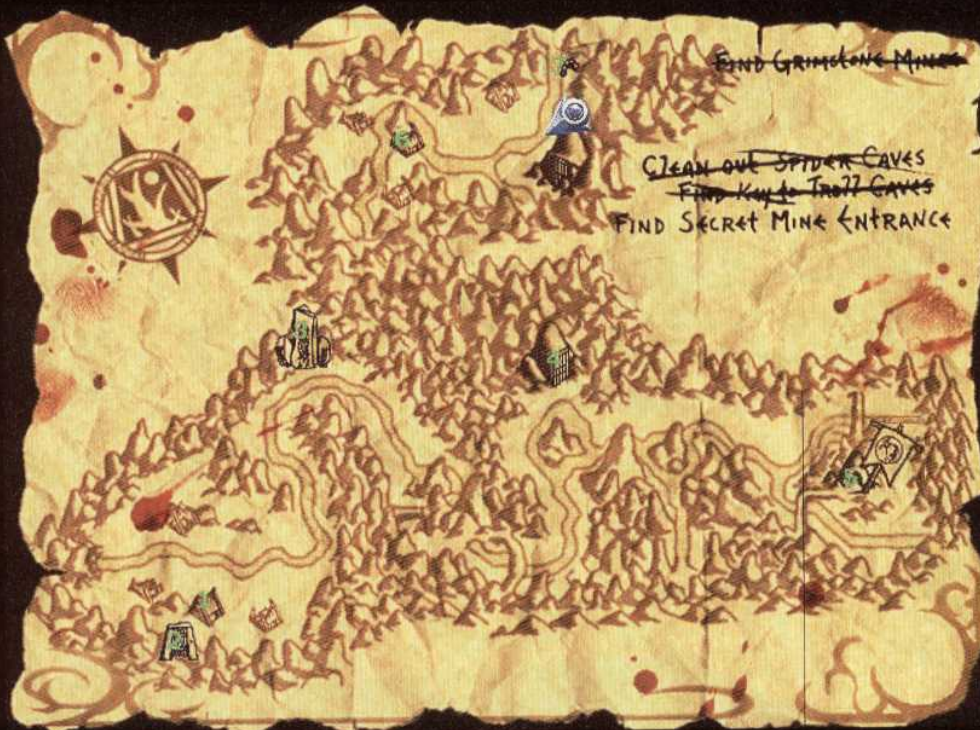 Find Grimstone Mines
Clean out Spider Caves
Find Key to Troll Caves
Find Secret Mine Entrance